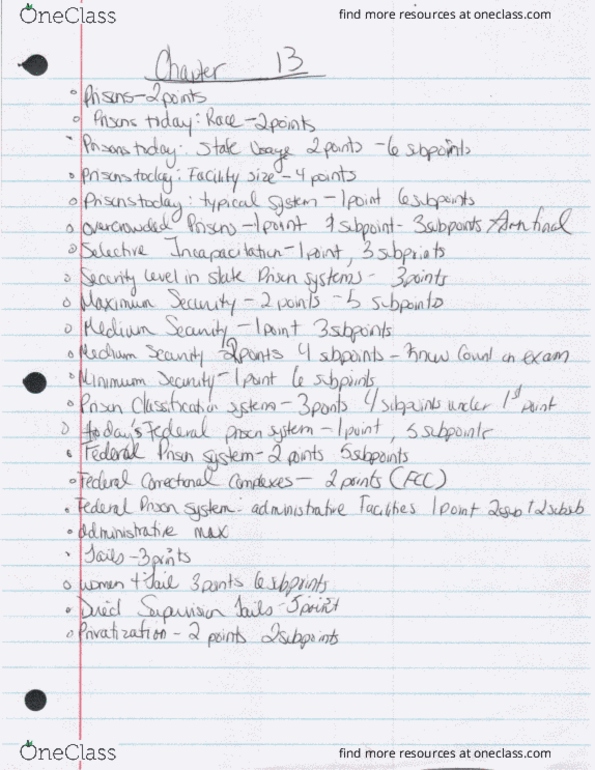 OneClass
find more resources at oneclass.com
Chapter 13
Prisons - 2 points
Prisons today: Race - 2 points
Prisons today: State Usage 2 points - 6 subpoints
Prisons today: Facility size - 4 points
Prisons today: typical system - 1 point 6 subpoints
overcrowded Prisons - 1 point 7 subpoint - 3 subpoints
Selective Incapacitation - 1 point, 3 subpoints
Security level in state Prison systems - 3 points
Maximum Security - 2 points - 5 subpoints
Medium Security - 1 point 3 subpoints
Medium Security - 2 points 4 subpoints - Know Count on exam
Minimum Security - 1 point 6 subpoints
Prison Classification systems - 3 points 4 subpoints under 1st point
today's Federal prison system - 1 point, 5 subpoints
Federal Prison system - 2 points 5 subpoints
Federal Correctional Complexes - 2 points (FCC)
Federal Prison system: administrative Facilities 1 point 2 sub 12 subsub
administrative max
Jails - 3 points
women + Jail 3 points 6 subpoints
Direct Supervision Jails - 5 point
Privatization - 2 points 2 subpoints
OneClass
find more resources at oneclass.com